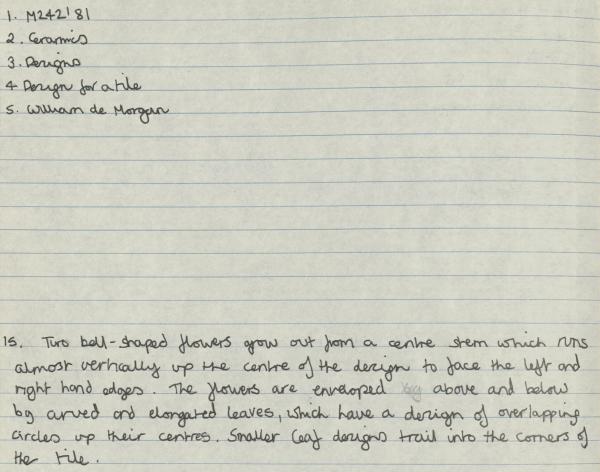 1. M242'81
2. Ceramics
3. Designs
4 Design for a tile
5. William de Morgan
15. Two bell-shaped flowers grow out from a centre stem which runs
almost vertically up the centre of the design to face the left and
right hand edges. The flowers are enveloped by above and below
by curved and elongated leaves, which have a design of overlapping
circles up their centres. Smaller leaf designs trail into the corners of
the tile.